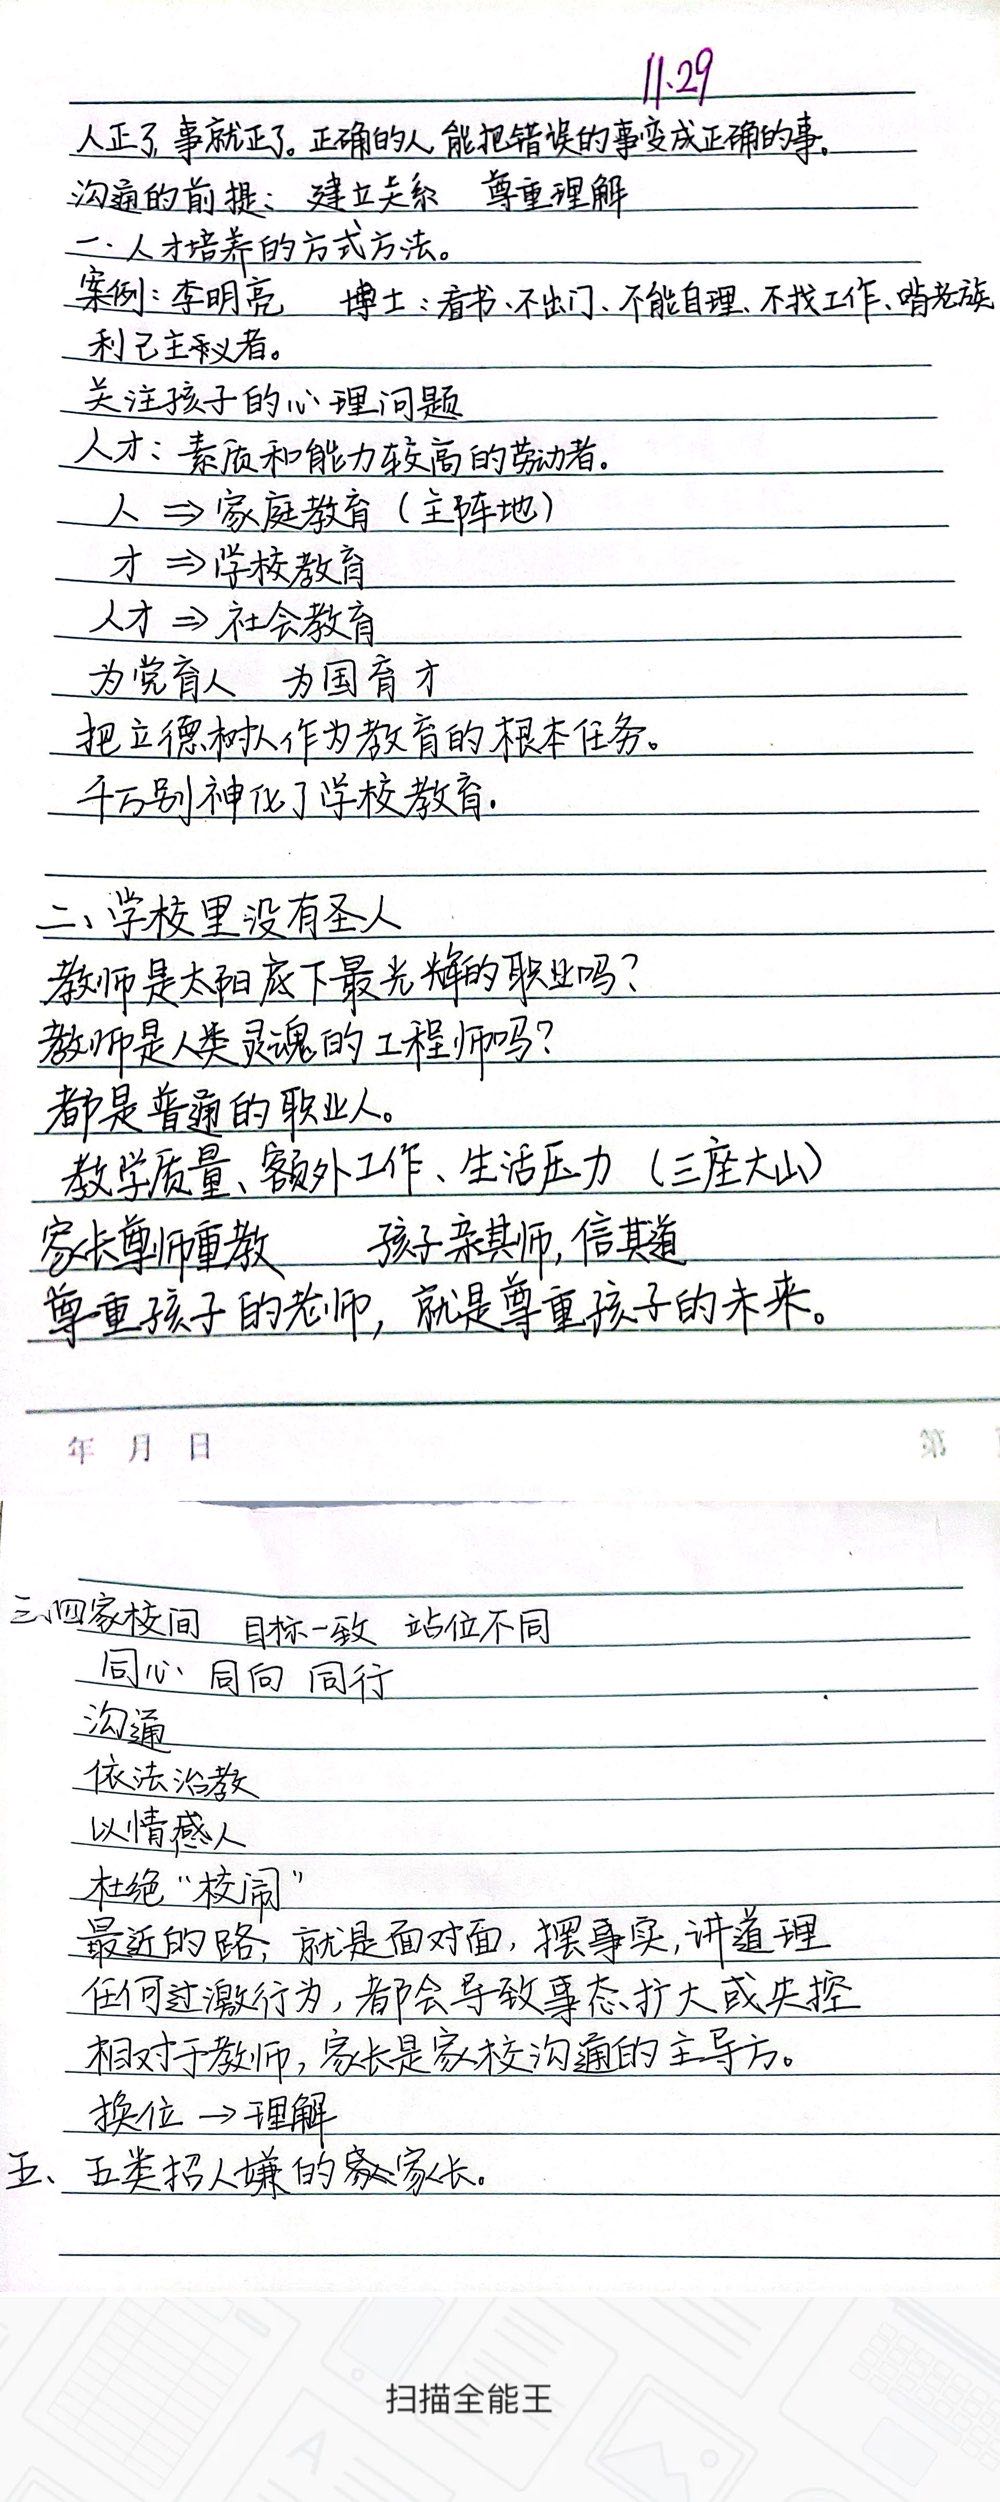 11.29
人正了,事就正了。正确的人,能把错误的事变成正确的事。
沟通的前提:建立关系 尊重理解
一.人才培养的方式方法。
案例:李明亮 博士:看书、不出门、不能自理、不找工作、啃老族
利己主义者。
关注孩子的心理问题
人才:素质和能力较高的劳动者。
人 ⇒ 家庭教育(主阵地)
才 ⇒ 学校教育
人才 ⇒ 社会教育
为党育人 为国育才
把立德树人作为教育的根本任务。
千万别神化了学校教育.
二、学校里没有圣人
教师是太阳底下最光辉的职业吗?
教师是人类灵魂的工程师吗?
都是普通的职业人。
教学质量、额外工作、生活压力(三座大山)
家长尊师重教 孩子亲其师,信其道
尊重孩子的老师,就是尊重孩子的未来。
年 月 日 第
三、四家校间 目标一致 站位不同
同心 同向 同行
沟通
依法治教
以情感人
杜绝“校闹”
最近的路;就是面对面,摆事实,讲道理
任何过激行为,都会导致事态扩大或失控
相对于教师,家长是家校沟通的主导方。
换位→理解
五、五类招人嫌的家长。
扫描全能王